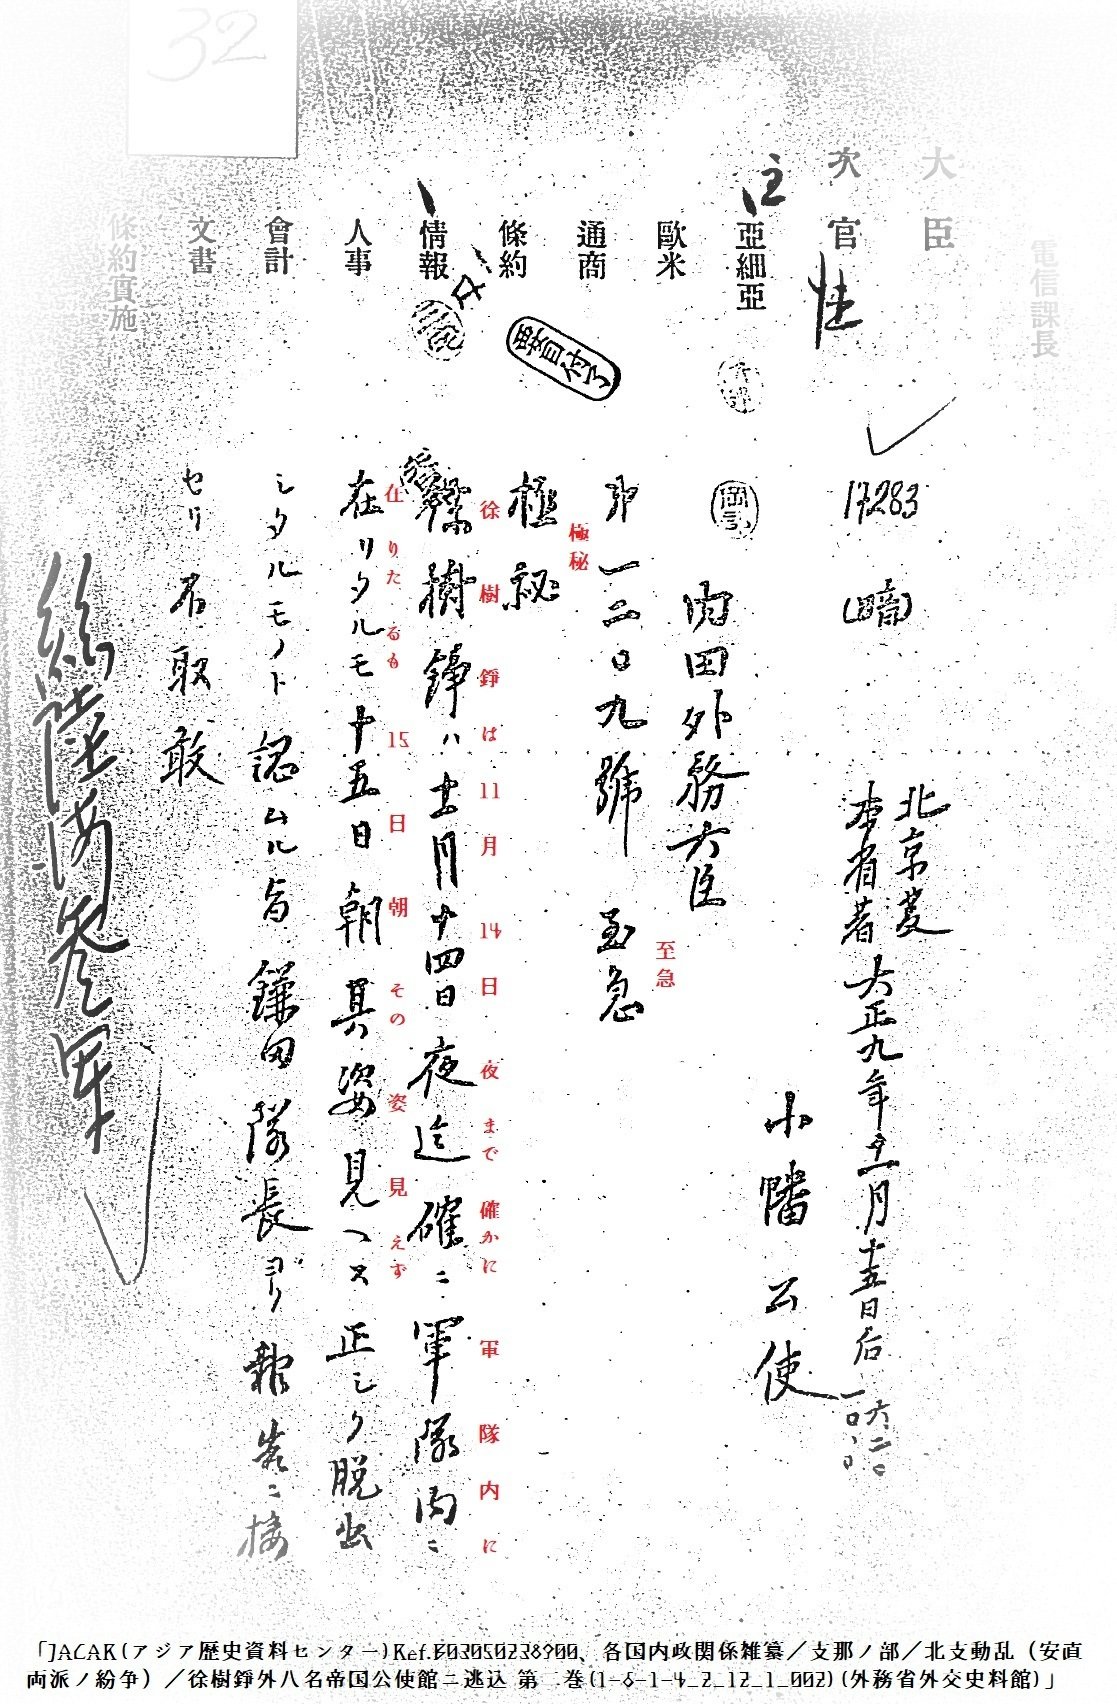 32
電信課長
大臣
次官
亞細亞
歐米
通商
條約
情報
人事
會計
文書
條約實施
17283
暗
北京發
本省著
大正九年十一月十五日后
六、二〇
一〇、〇
小幡公使
内田外務大臣
第一二〇九號 至急
至急
極秘
極秘
徐樹錚ハ十一月十四日夜迄確ニ軍隊内ニ
徐樹錚は11月14日夜まで確かに軍隊内に
在リタルモ十五日朝其姿見ヘス正シク脱出
在りたるも15日朝その姿見えず
シタルモノト認ムル旨鎌田隊長ヨリ報告ニ接
セリ不取敢
「JACAR(アジア歴史資料センター)Ref.B03050238900、各国内政関係雑纂／支那ノ部／北支動乱（安直
両派ノ紛争）／徐樹錚外八名帝国公使館ニ逃込 第二巻(1-6-1-4_2_12_1_002)(外務省外交史料館)」